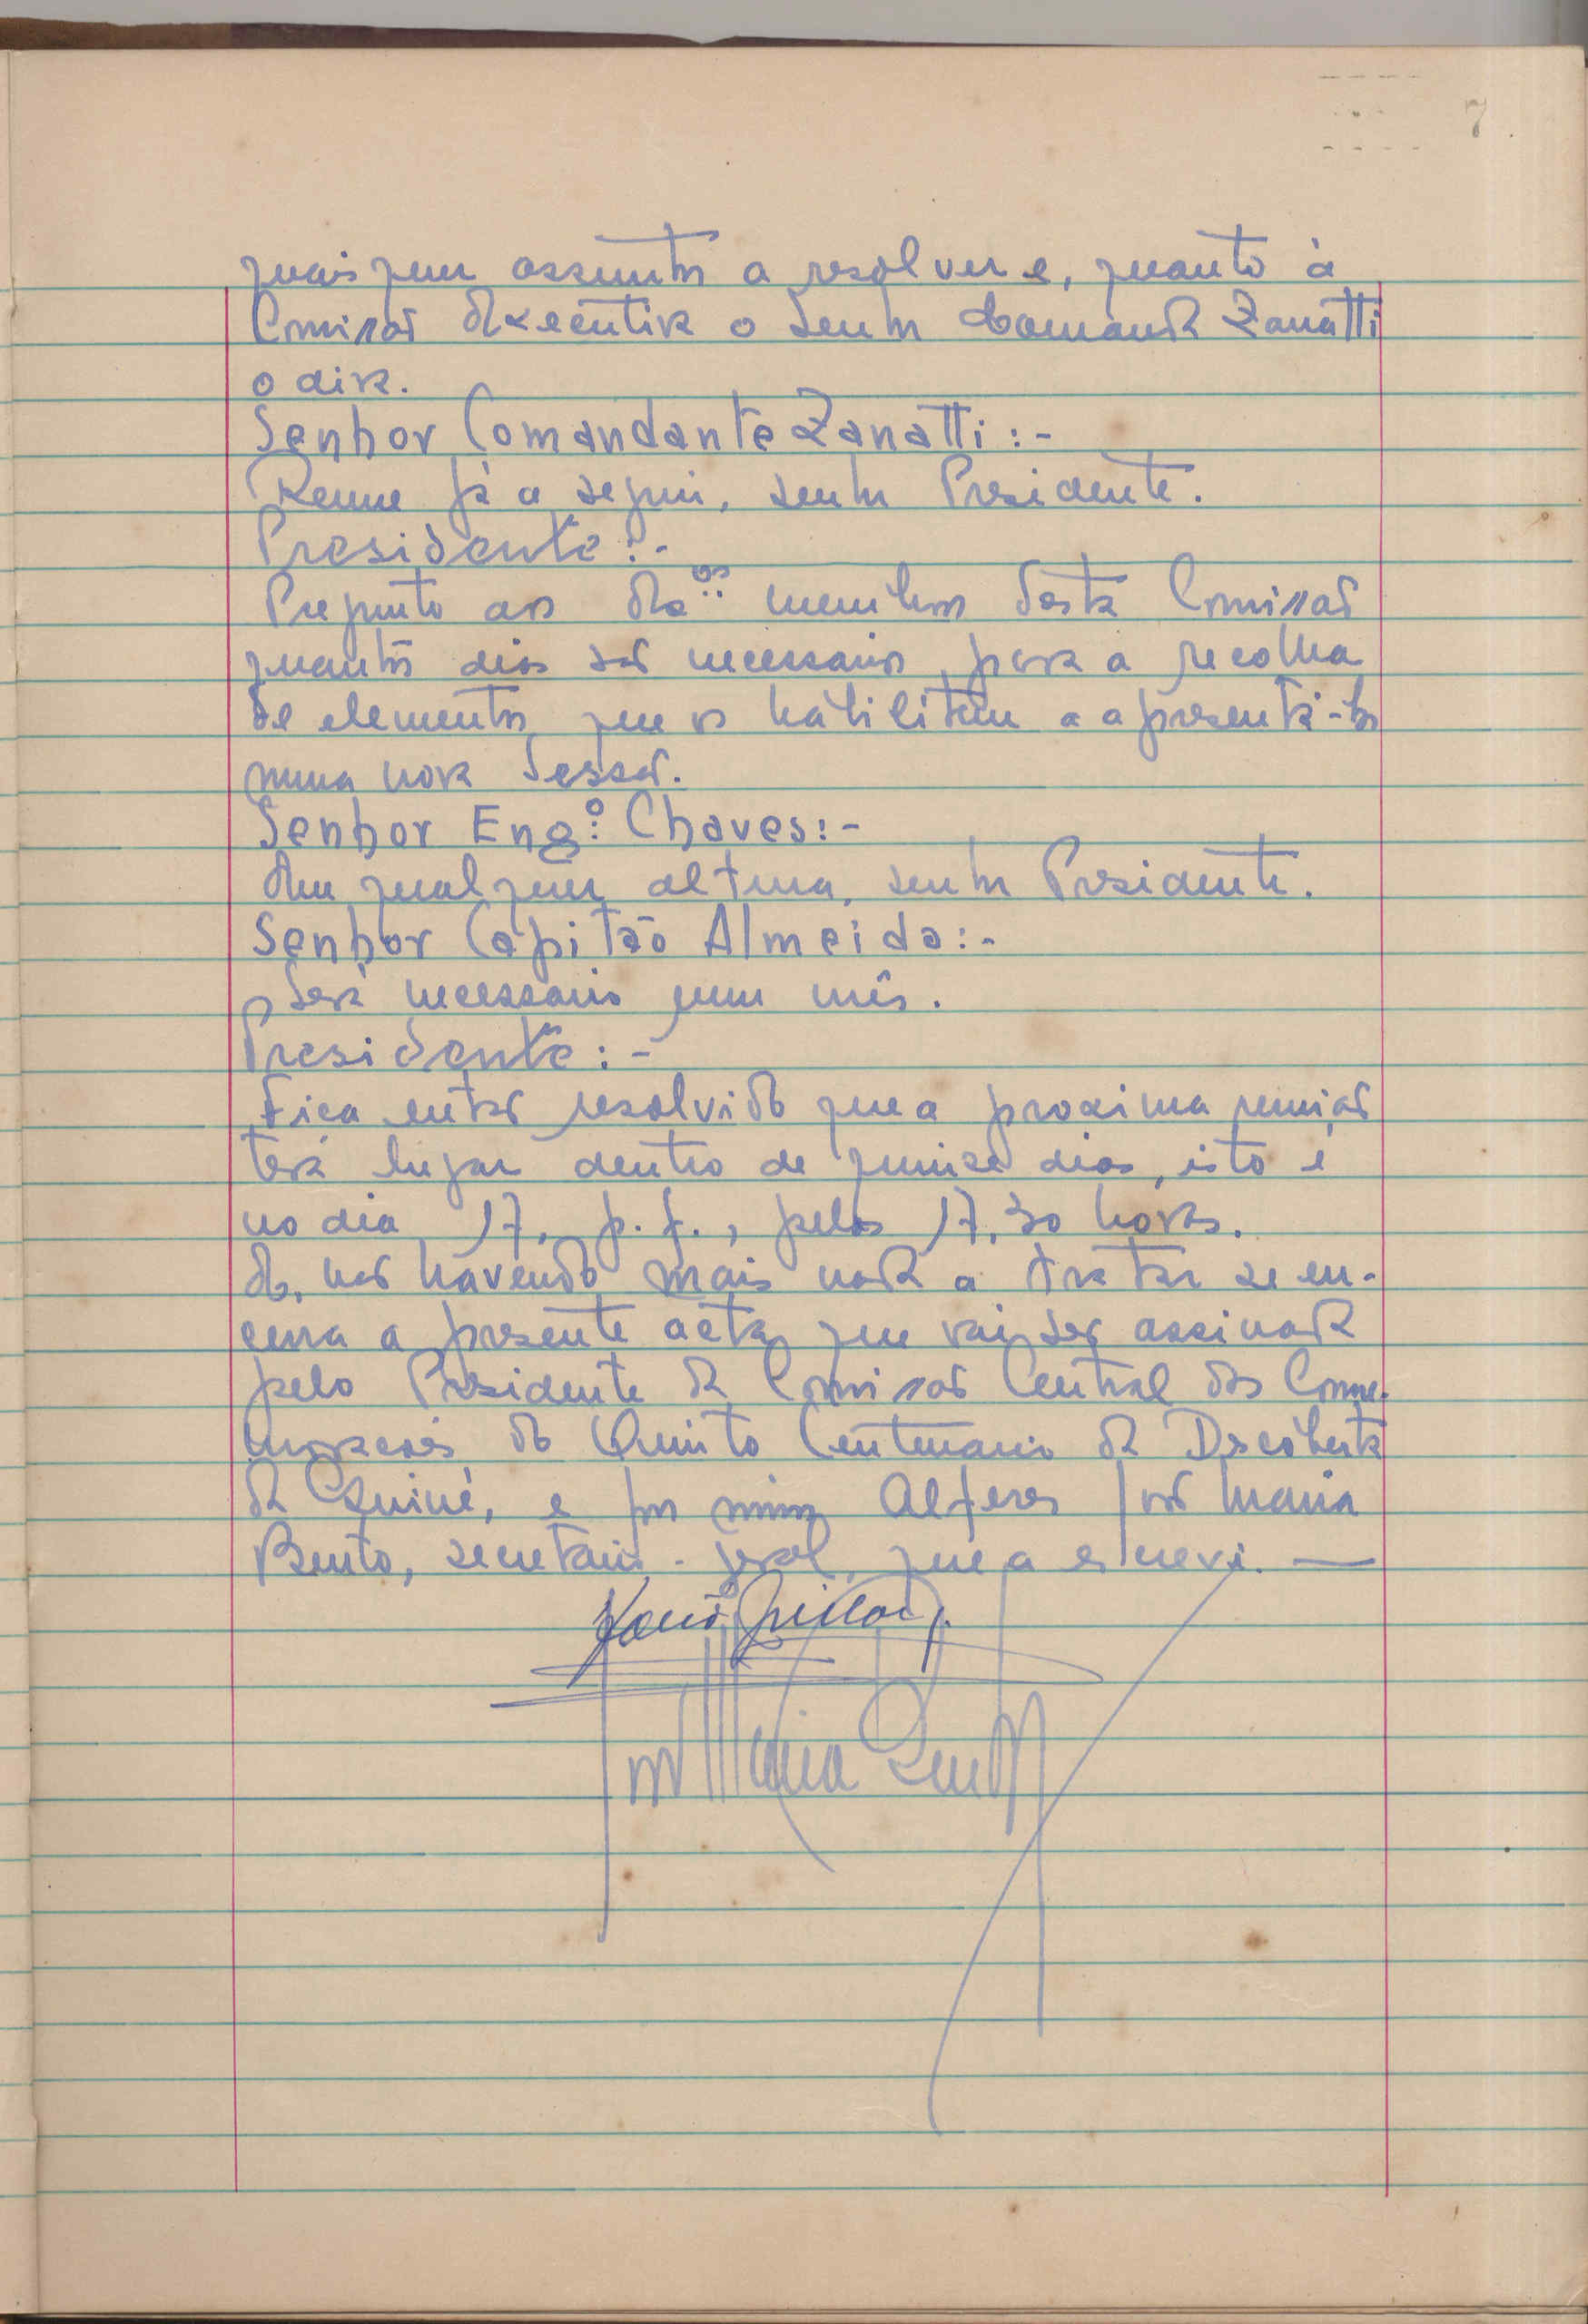 7
quaisquer assuntos a resolver e, quanto à
Comissão Executiva o Senhor Comand. Zanatti
o dirá.
Senhor Comandante Zanatti:-
Reune já a seguir, senhor Presidente.
Presidente:-
Pregunto aos Ex.ᵒˢ membros desta Comissão
quantos dias são necessarios para a recolha
de elementos que os habilitem a apresentá-los
numa nova Sessão.
Senhor Eng.º Chaves:-
Em qualquer altura, senhor Presidente.
Senhor Capitão Almeida:-
Será necessario um mês.
Presidente:-
Fica então resolvido que a proxima reunião
terá lugar dentro de quinze dias, isto é
no dia 17, p. f., pelas 17,30 horas.
E, não havendo mais nada a tratar se en-
cerra a presente acta que vai ser assinada
pelo Presidente da Comissão Central das Come-
morações do Quinto Centenario da Descoberta
da Guiné, e por mim Alferes João Maria
Bento, secretario-geral, que a escrevi. —
Maria Bento